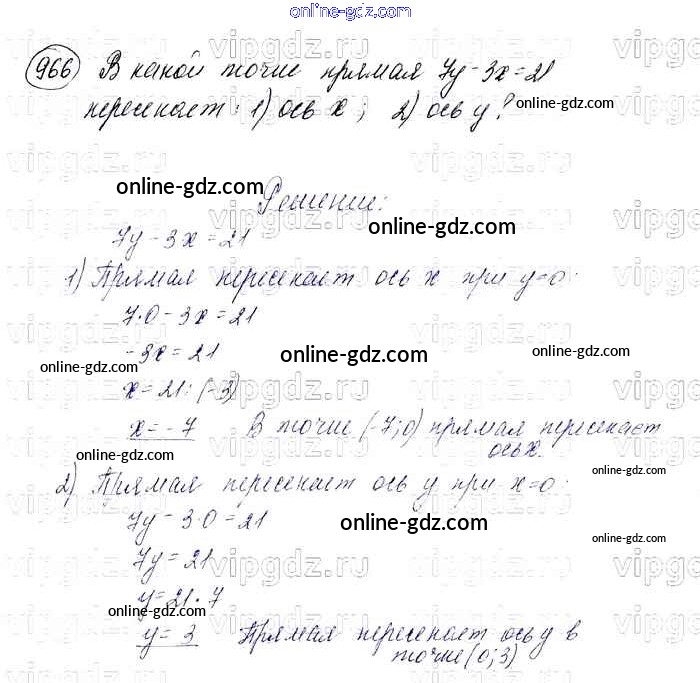 online-gdz.com
966 В какой точке прямая 7y-3x=21
пересекает: 1) ось x; 2) ось y?
online-gdz.com
online-gdz.com
Решение:
online-gdz.com
7y-3x=21
1) Прямая пересекает ось x при y=0.
7·0-3x=21
-3x=21
online-gdz.com
online-gdz.com
online-gdz.com
x=21:(-3)
x=-7 В точке (-7;0) прямая пересекает
ось x.
online-gdz.com
online-gdz.com
2) Прямая пересекает ось y при x=0.
7y-3·0=21
online-gdz.com
7y=21
y=21·7
online-gdz.com
online-gdz.com
y=3 Прямая пересекает ось y в
точке (0;3)
vipgdz.ru